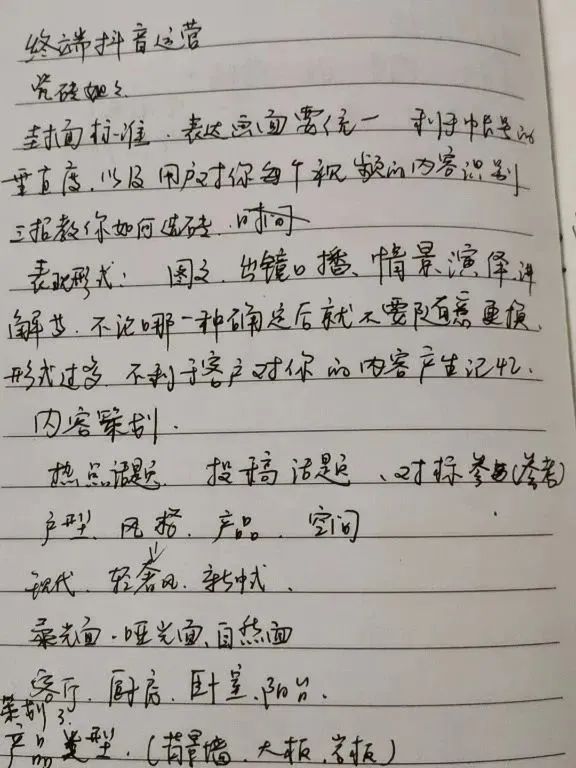 终端抖音运营
瓷砖她々
封面标准、表达画面要统一 利于帐号的
垂直度，以及用户对你每个视频的内容识别
三招教你如何选砖、时间
表现形式：图文、出镜口播、情景演绎、讲
解等、不论哪一种确定后就不要随意更换、
形式过多、不利于客户对你的内容产生记忆、
内容策划、
热点话题、投稿话题、对标参与(参考)
户型、风格、产品、空间
现代、轻奢风、新中式、
柔光面、哑光面、自然面
客厅、厨房、卧室、阳台、
策划
产品类型、(背景墙、大板、岩板)